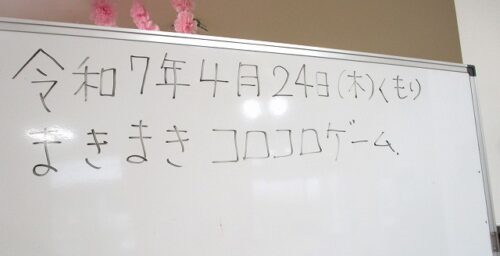 令和7年4月24日(木)くもり
まきまきコロコロゲーム.